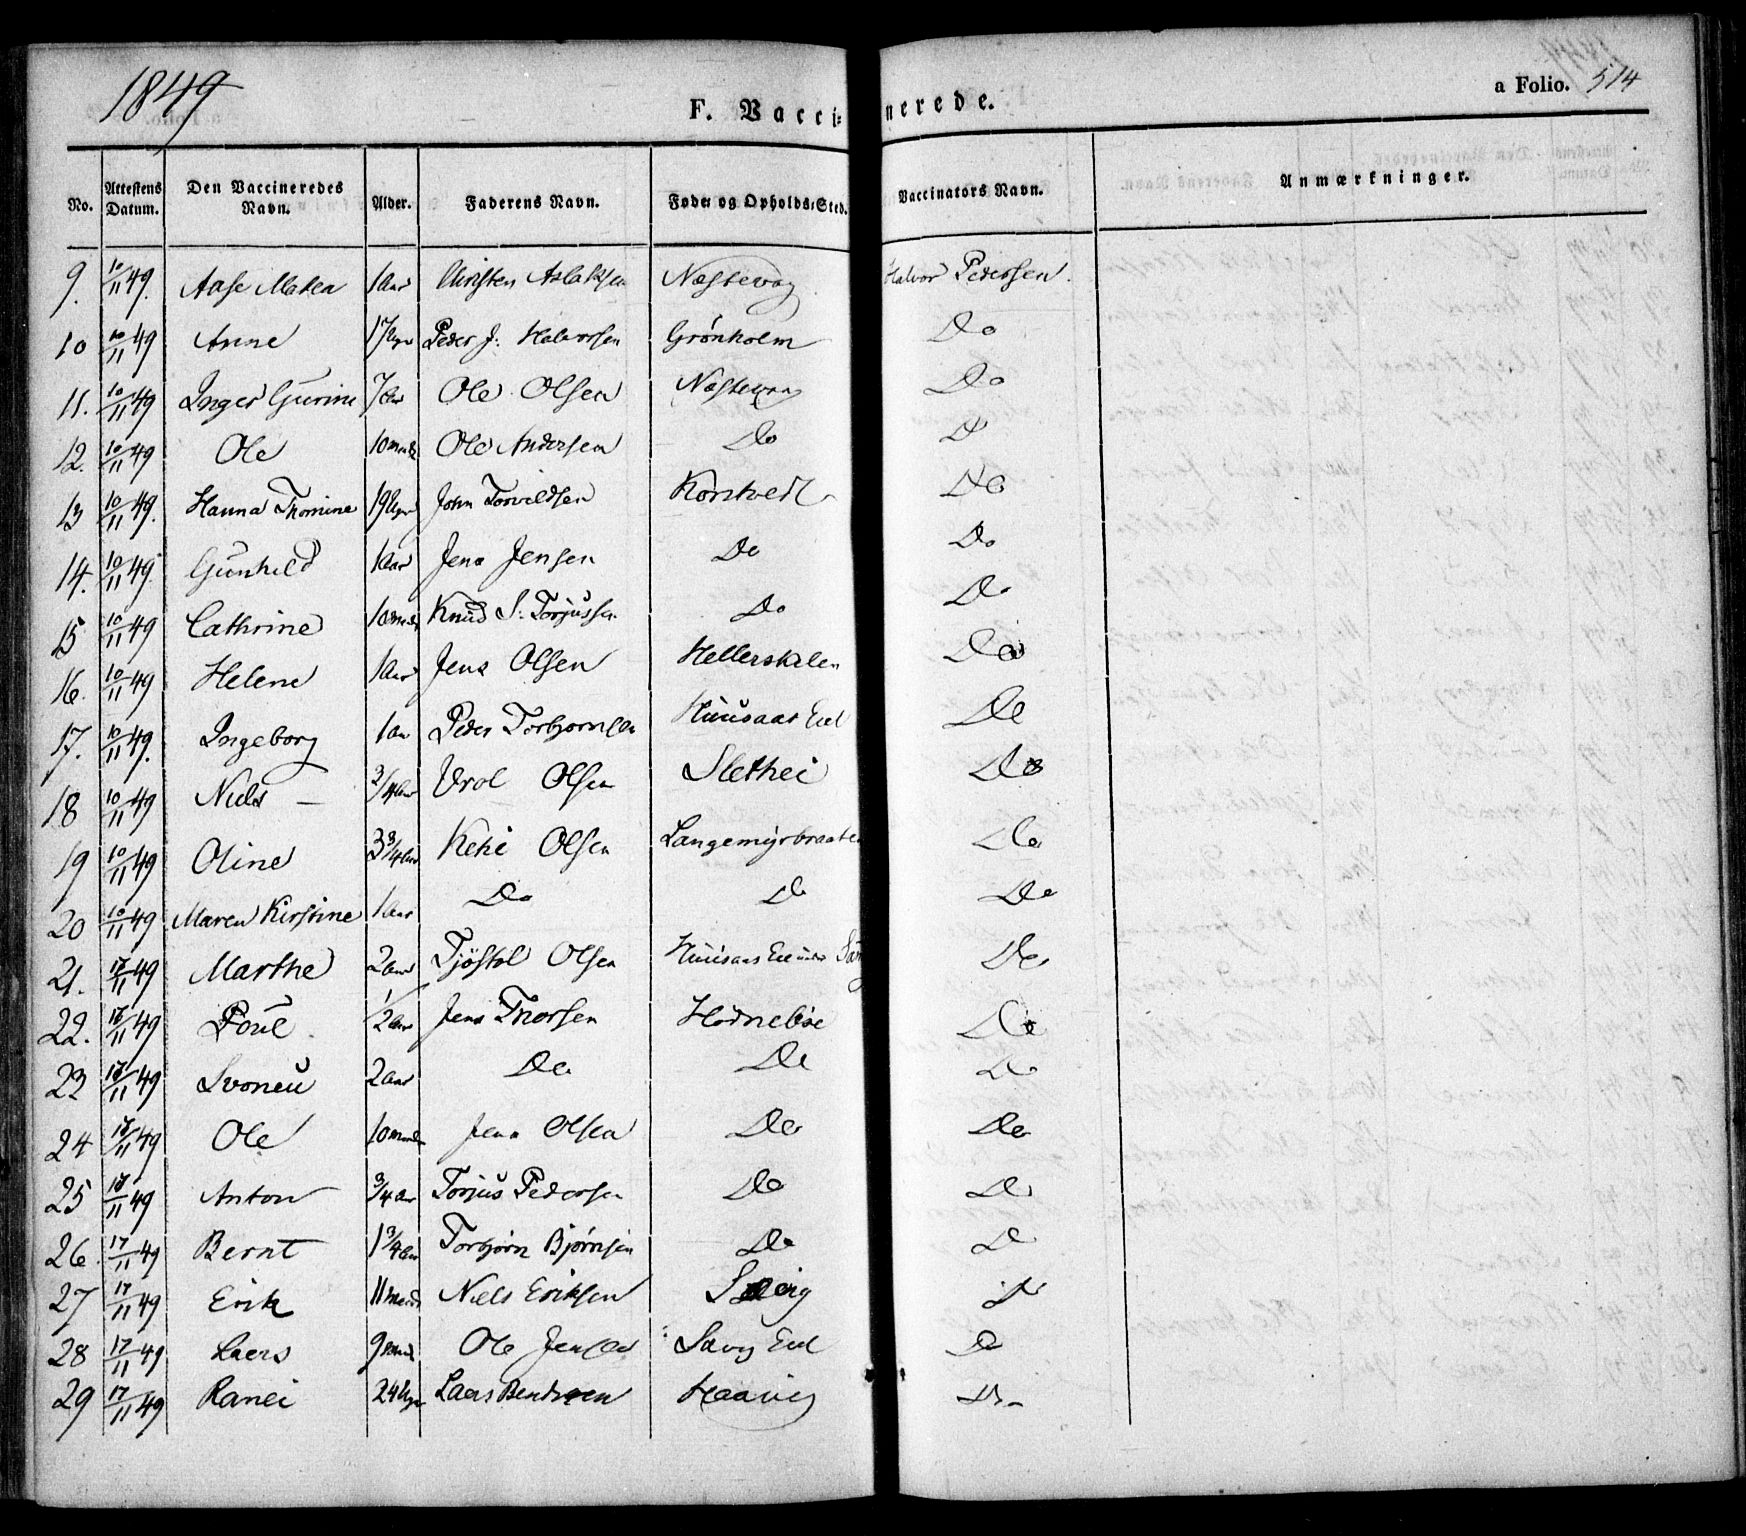 1849
F. Vaccinerede.
a Folio. 514
No. | Attestens Datum. | Den Vaccineredes Navn. | Alder. | Faderens Navn. | Føde- og Opholds-Sted. | Vaccinators Navn. | Anmærkninger.
9. | 10/11 49. | Aase Malea | 1 Aar | Christen Aslaksen | Næstevog | Halvor Pedersen.
10 | 10/11 49 | Anne | 17 Uger | Peder J: Halvorsen | Grønholm | Do
11. | 10/11 49 | Inger Gurine | 7 Aar | Ole Olsen | Næstevaag | Do
12. | 10/11 49 | Ole | 10 | Ole Andersen | Do | D
13 | 10/11 49. | Hanna Thomine | 19 Uger | John Torvildsen | Korstvedt | Do
14. | 10/11 49. | Gunhild | 1 Aar | Jens Jensen | Do | Do
15 | 10/11 49 | Cathrine | 10 | Knud S: Torjussen | Do | Do
16. | 10/11 49. | Helene | 1 Aar | Jens Olsen | Hellerskilen | Do
17. | 10/11 49. | Ingeborg | 1 Aar | Peder Torbjørnsen | Huusaas Eiel | Do
18 | 10/11 49 | Niels – | 3/4 Aar | Vrol Olsen | Slethei | Do
19 | 10/11 49 | Oline | 3 3/4 Aar | Olsen | Langemyrbraaten | Do
20 | 10/11 49. | Maren Kirstine | 1 Aar | Do | D | Do
21. | 17/11 49 | Marthe | 2 Aar | Tjøstol Olsen | Huusaas Eie under | Do
22. | 17/11 49 | Poul | 1/2 Aar | Jens Thorsen | Hødnebøe | Do
23 | 17/11 49 | | 2 Aar | Do | Do | Do
24 | 17/11 49 | Ole | 10 | Jens Olsen | Do | Do
25 | 17/11 49 | Anton | 3/4 Aar | Torjus Pedersen | Do | Do
26. | 17/11 49 | Bernt | 1 3/4 Aar | Torbjørn Bjørnsen | Do | D
27 | 17/11 49 | Erik | 11 | Niels Eriksen | | D
28 | 17/11 49 | Laers | 9 | Ole Jensen | Eiel | Do
29 | 17/11 49 | Ranei | 24 Uger | Laers Bendixen | Haavig | Do